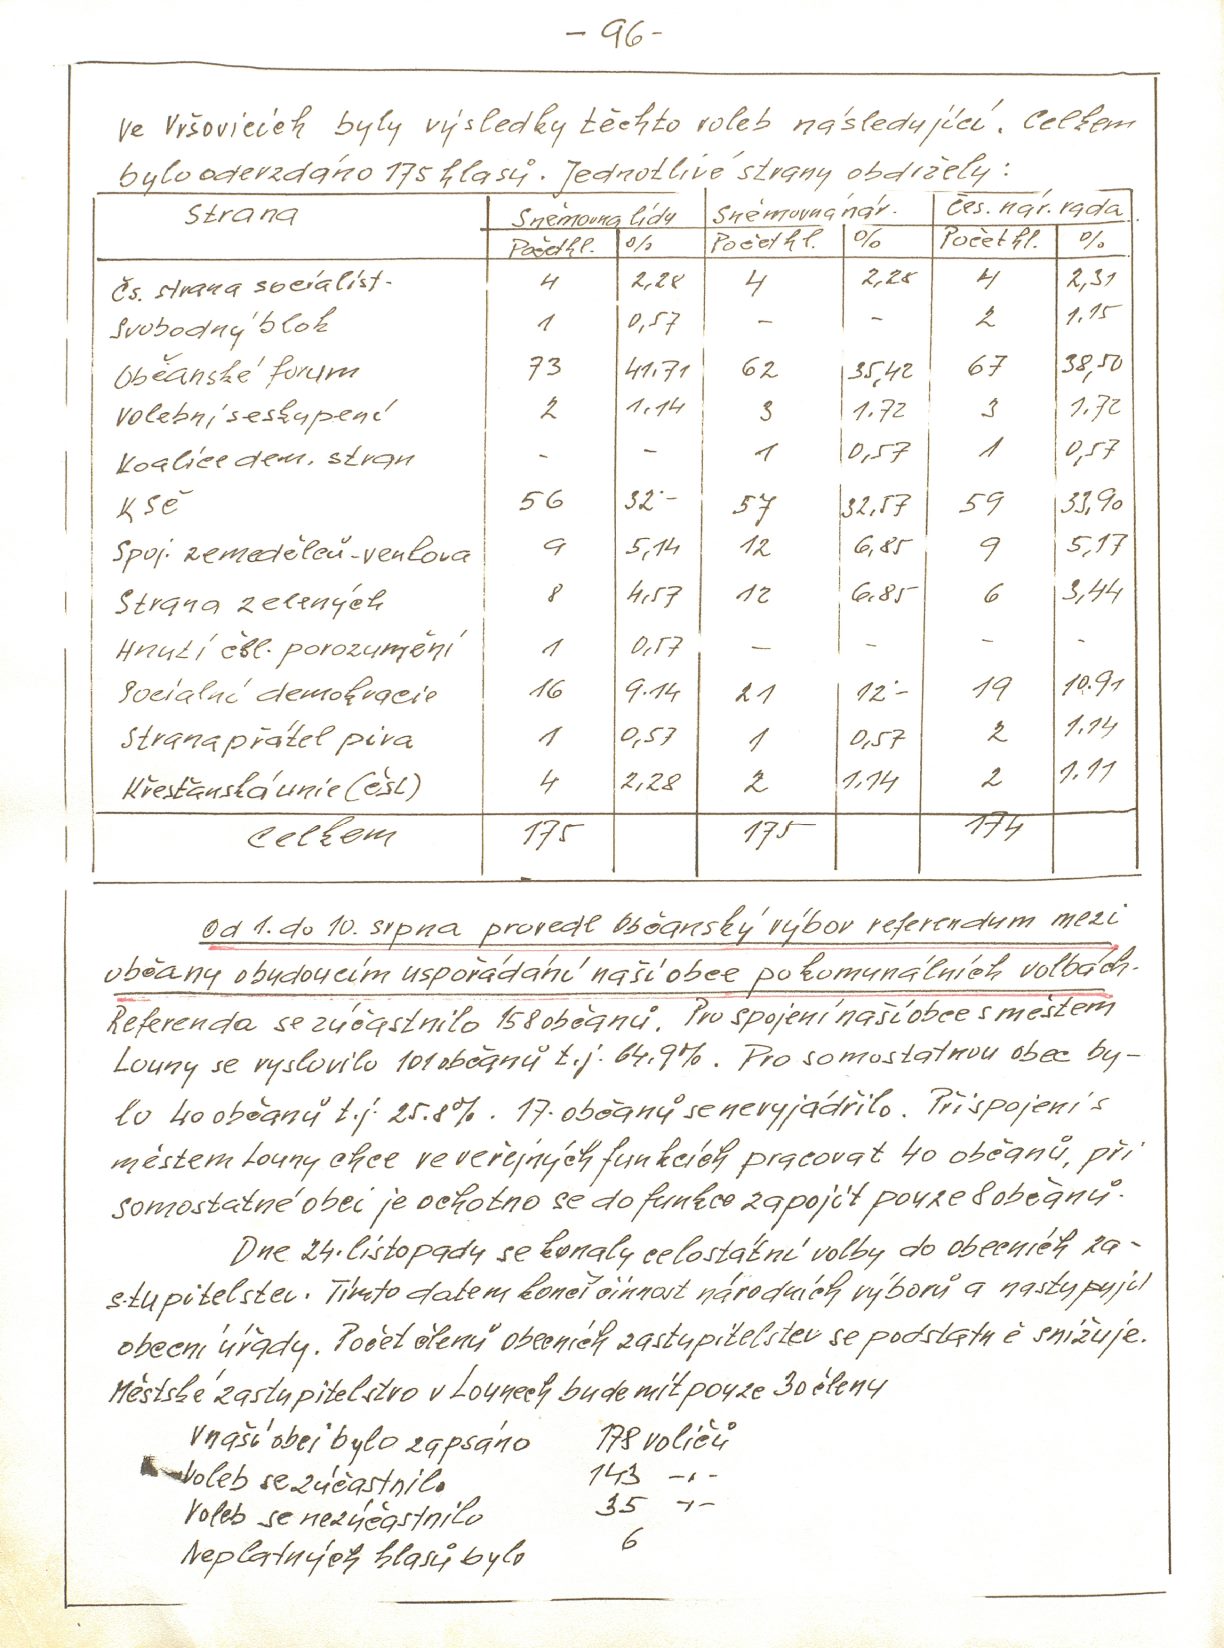 - 96 -
Ve Vršovicích byly výsledky těchto voleb následující. Celkem
bylo odevzdáno 175 hlasů. Jednotlivé strany obdržely:
Strana Sněmovna lidu Sněmovna nár. Čes. nár. rada
Počet hl. % Počet hl. % Počet hl. %
Čs. strana socialist. 4 2,28 4 2,28 4 2,31
Svobodný blok 1 0,57 - - 2 1.15
Občanské forum 73 41.71 62 35,42 67 38,50
Volební seskupení 2 1.14 3 1.72 3 1.72
Koalice dem. stran - - 1 0,57 1 0,57
KSČ 56 32.- 57 32,57 59 33,90
Spoj. zemedělců-venkova 9 5,14 12 6,85 9 5,17
Strana zelených 8 4.57 12 6.85 6 3,44
Hnutí čsl. porozumění 1 0,57 - - - -
Sociální demokracie 16 9.14 21 12.- 19 10.91
Strana přátel piva 1 0,57 1 0,57 2 1.14
Křesťanská unie (čsl) 4 2,28 2 1.14 2 1.11
Celkem 175 175 174
Od 1. do 10. srpna provedl Občanský výbor referendum mezi
občany obudoucím uspořádání naší obce po komunálních volbách.
Referenda se zúčastnilo 158 občanů. Pro spojení naší obce s městem
Louny se vyslovilo 101 občanů t.j. 64.9%. Pro somostatnou obec by-
lo 40 občanů t.j. 25.8%. 17. občanů se nevyjádřilo. Při spojení s
městem Louny chce ve veřejných funkcích pracovat 40 občanů, při
somostatné obci je ochotno se do funkce zapojit pouze 8 občanů.
Dne 24. listopady se konaly celostátní volby do obecních za-
stupitelstev. Tímto datem končí činnost národních výborů a nastupují
obecní úřady. Počet členů obecních zastupitelstev se podstatně snižuje.
Městské zastupitelstvo v Lounech bude mít pouze 30 členy
V naší obci bylo zapsáno 178 voličů
Voleb se zúčastnilo 143 -„-
Voleb se nezúčastnilo 35 -„-
Neplatných hlasů bylo 6